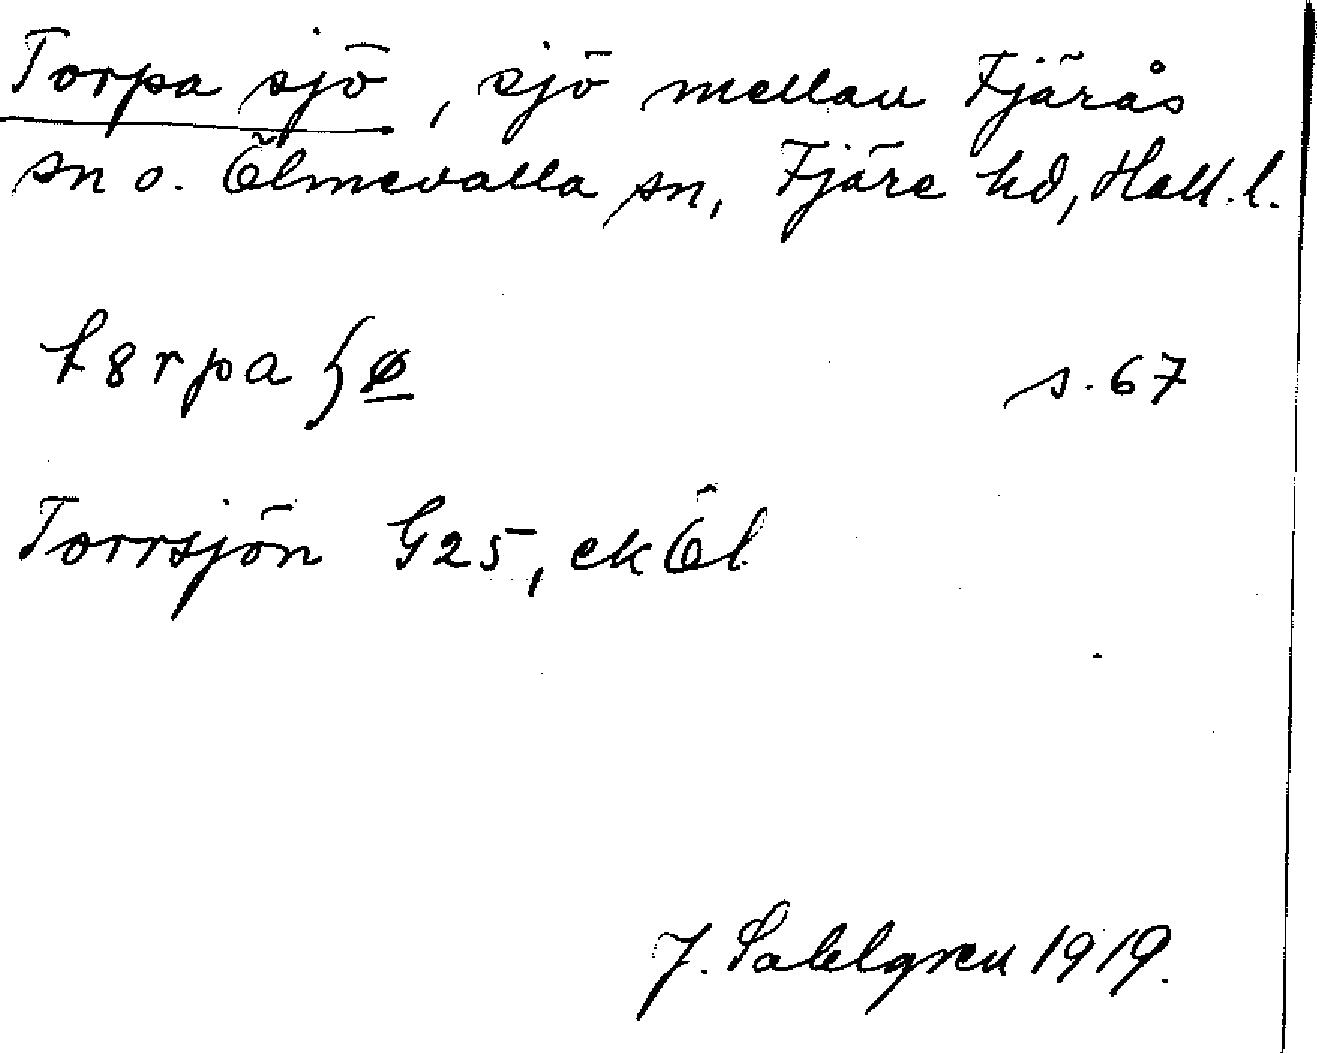 Torpa sjö, sjö mellan Fjärås
sn o. Ölmevalla sn, Fjäre hd, Hall. l.
s. 67
Torrsjön G25, ek Öl
J. Sahlgren 1919.